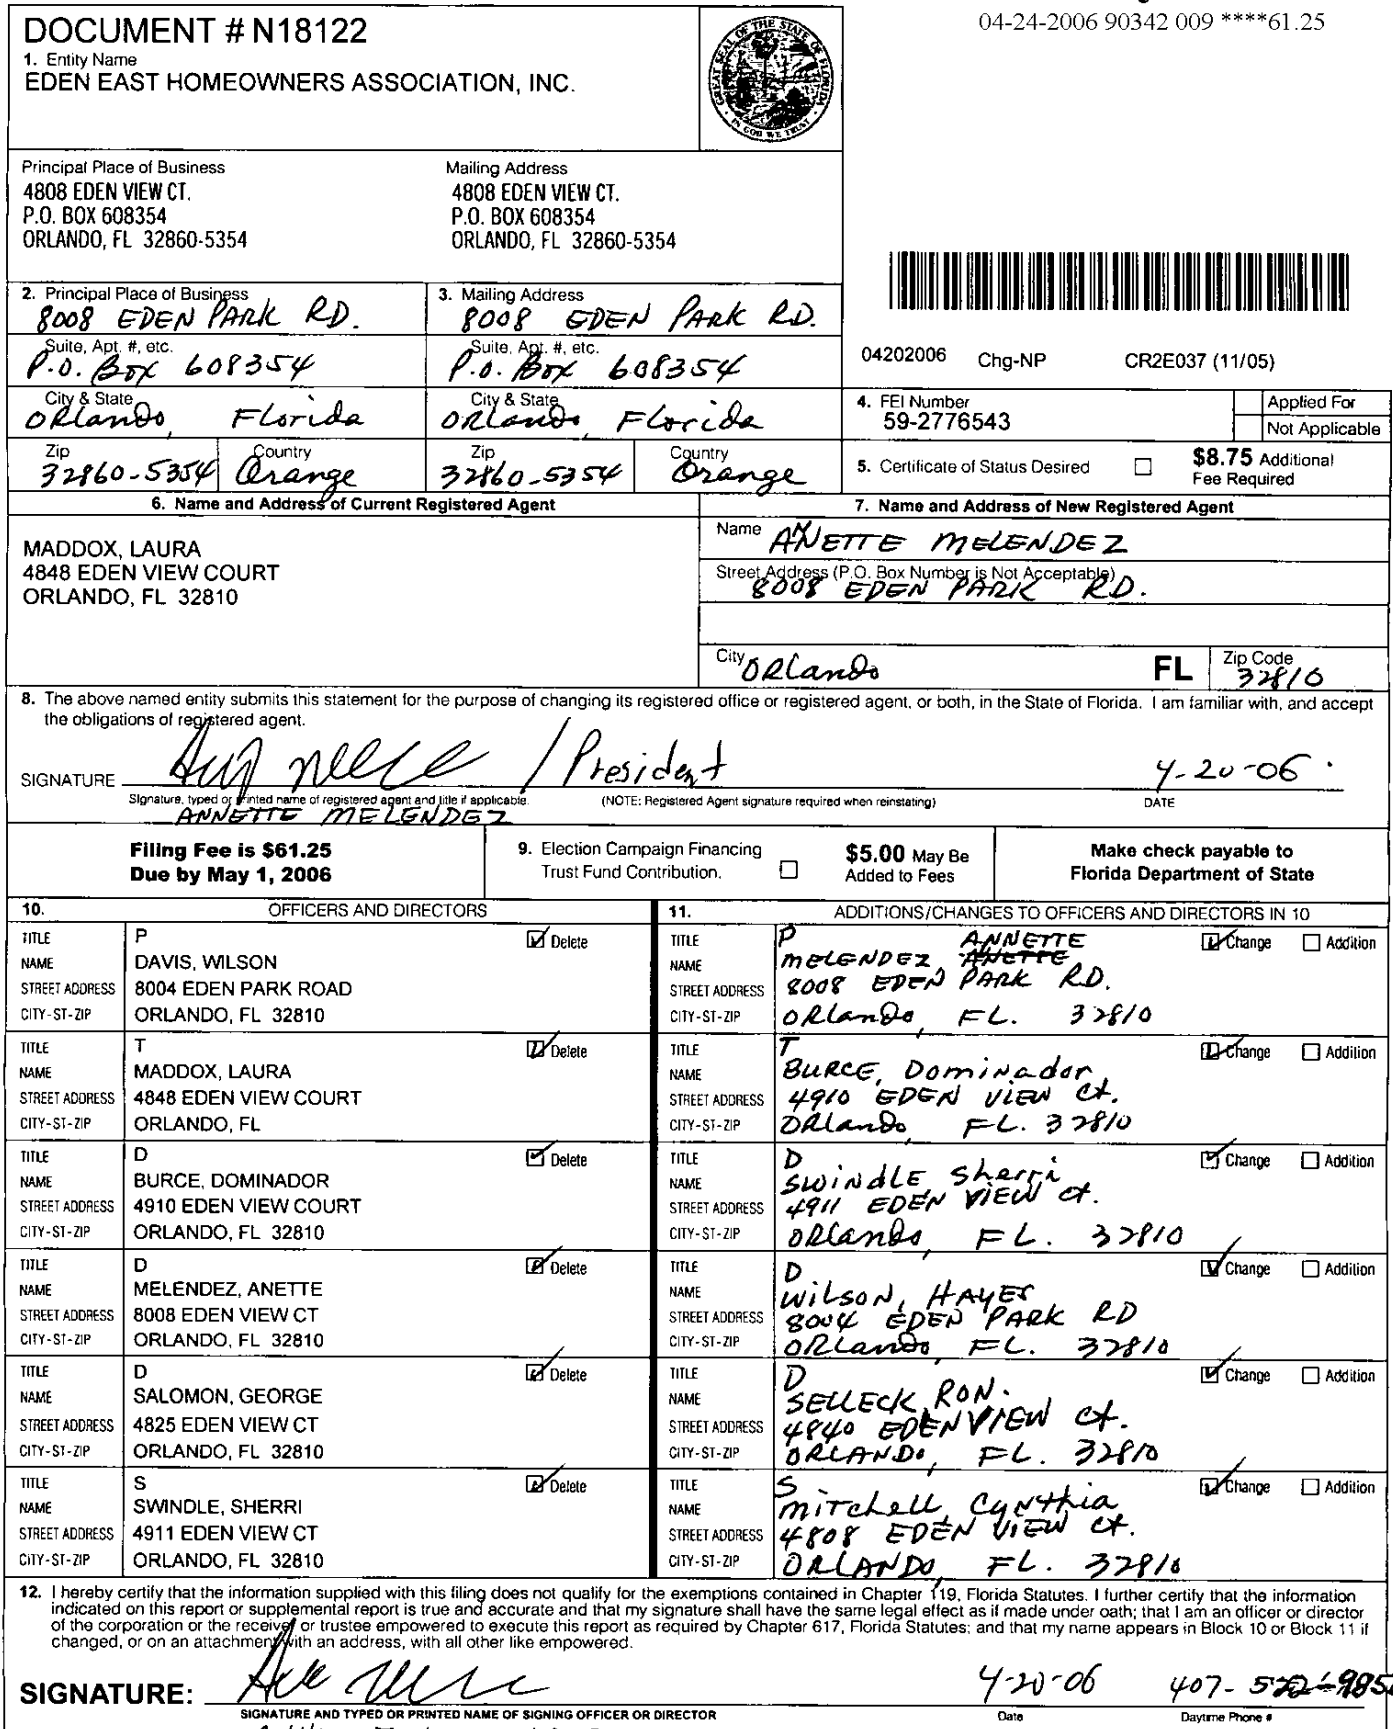 04-24-2006 90342 009 ****61.25
DOCUMENT # N18122
1. Entity Name
EDEN EAST HOMEOWNERS ASSOCIATION, INC.
GREAT SEAL OF THE STATE OF FLORIDA
IN GOD WE TRUST
Principal Place of Business
4808 EDEN VIEW CT.
P.O. BOX 608354
ORLANDO, FL 32860-5354
Mailing Address
4808 EDEN VIEW CT.
P.O. BOX 608354
ORLANDO, FL 32860-5354
2. Principal Place of Business
8008 EDEN PARK RD.
3. Mailing Address
8008 EDEN PARK RD.
Suite, Apt. #, etc.
P.O. Box 608354
Suite, Apt. #, etc.
P.O. Box 608354
City & State
Orlando, Florida
City & State
Orlando, Florida
Zip
32860-5354
Country
Orange
Zip
32860-5354
Country
Orange
04202006 Chg-NP CR2E037 (11/05)
4. FEI Number
59-2776543
Applied For
Not Applicable
5. Certificate of Status Desired
$8.75 Additional
Fee Required
6. Name and Address of Current Registered Agent
MADDOX, LAURA
4848 EDEN VIEW COURT
ORLANDO, FL 32810
7. Name and Address of New Registered Agent
Name ANETTE MELENDEZ
Street Address (P.O. Box Number is Not Acceptable)
8008 EDEN PARK RD.
City Orlando FL Zip Code
32810
8. The above named entity submits this statement for the purpose of changing its registered office or registered agent, or both, in the State of Florida. I am familiar with, and accept
the obligations of registered agent.
SIGNATURE / President 4-20-06
Signature, typed or printed name of registered agent and title if applicable. (NOTE: Registered Agent signature required when reinstating) DATE
ANNETTE MELENDEZ
Filing Fee is $61.25
Due by May 1, 2006
9. Election Campaign Financing
Trust Fund Contribution.
$5.00 May Be
Added to Fees
Make check payable to
Florida Department of State
10. OFFICERS AND DIRECTORS
TITLE P Delete
NAME DAVIS, WILSON
STREET ADDRESS 8004 EDEN PARK ROAD
CITY-ST-ZIP ORLANDO, FL 32810
TITLE T Delete
NAME MADDOX, LAURA
STREET ADDRESS 4848 EDEN VIEW COURT
CITY-ST-ZIP ORLANDO, FL
TITLE D Delete
NAME BURCE, DOMINADOR
STREET ADDRESS 4910 EDEN VIEW COURT
CITY-ST-ZIP ORLANDO, FL 32810
TITLE D Delete
NAME MELENDEZ, ANETTE
STREET ADDRESS 8008 EDEN VIEW CT
CITY-ST-ZIP ORLANDO, FL 32810
TITLE D Delete
NAME SALOMON, GEORGE
STREET ADDRESS 4825 EDEN VIEW CT
CITY-ST-ZIP ORLANDO, FL 32810
TITLE S Delete
NAME SWINDLE, SHERRI
STREET ADDRESS 4911 EDEN VIEW CT
CITY-ST-ZIP ORLANDO, FL 32810
11. ADDITIONS/CHANGES TO OFFICERS AND DIRECTORS IN 10
TITLE P ANNETTE Change Addition
NAME MELENDEZ ANETTE
STREET ADDRESS 8008 EDEN PARK RD.
CITY-ST-ZIP Orlando, FL. 32810
TITLE T Change Addition
NAME BURCE, Dominador
STREET ADDRESS 4910 EDEN VIEW Ct.
CITY-ST-ZIP Orlando, FL. 32810
TITLE D Change Addition
NAME SWINDLE, Sherri
STREET ADDRESS 4911 EDEN VIEW Ct.
CITY-ST-ZIP Orlando, FL. 32810
TITLE D Change Addition
NAME WILSON, HAYES
STREET ADDRESS 8004 EDEN PARK RD
CITY-ST-ZIP Orlando, FL. 32810
TITLE D Change Addition
NAME SELLECK, RON.
STREET ADDRESS 4840 EDEN VIEW Ct.
CITY-ST-ZIP ORLANDO, FL. 32810
TITLE S Change Addition
NAME Mitchell, Cynthia
STREET ADDRESS 4808 EDEN VIEW Ct.
CITY-ST-ZIP ORLANDO, FL. 32810
12. I hereby certify that the information supplied with this filing does not qualify for the exemptions contained in Chapter 119, Florida Statutes. I further certify that the information
indicated on this report or supplemental report is true and accurate and that my signature shall have the same legal effect as if made under oath; that I am an officer or director
of the corporation or the receiver or trustee empowered to execute this report as required by Chapter 617, Florida Statutes; and that my name appears in Block 10 or Block 11 if
changed, or on an attachment with an address, with all other like empowered.
SIGNATURE: 4-20-06 407-
SIGNATURE AND TYPED OR PRINTED NAME OF SIGNING OFFICER OR DIRECTOR Date Daytime Phone #